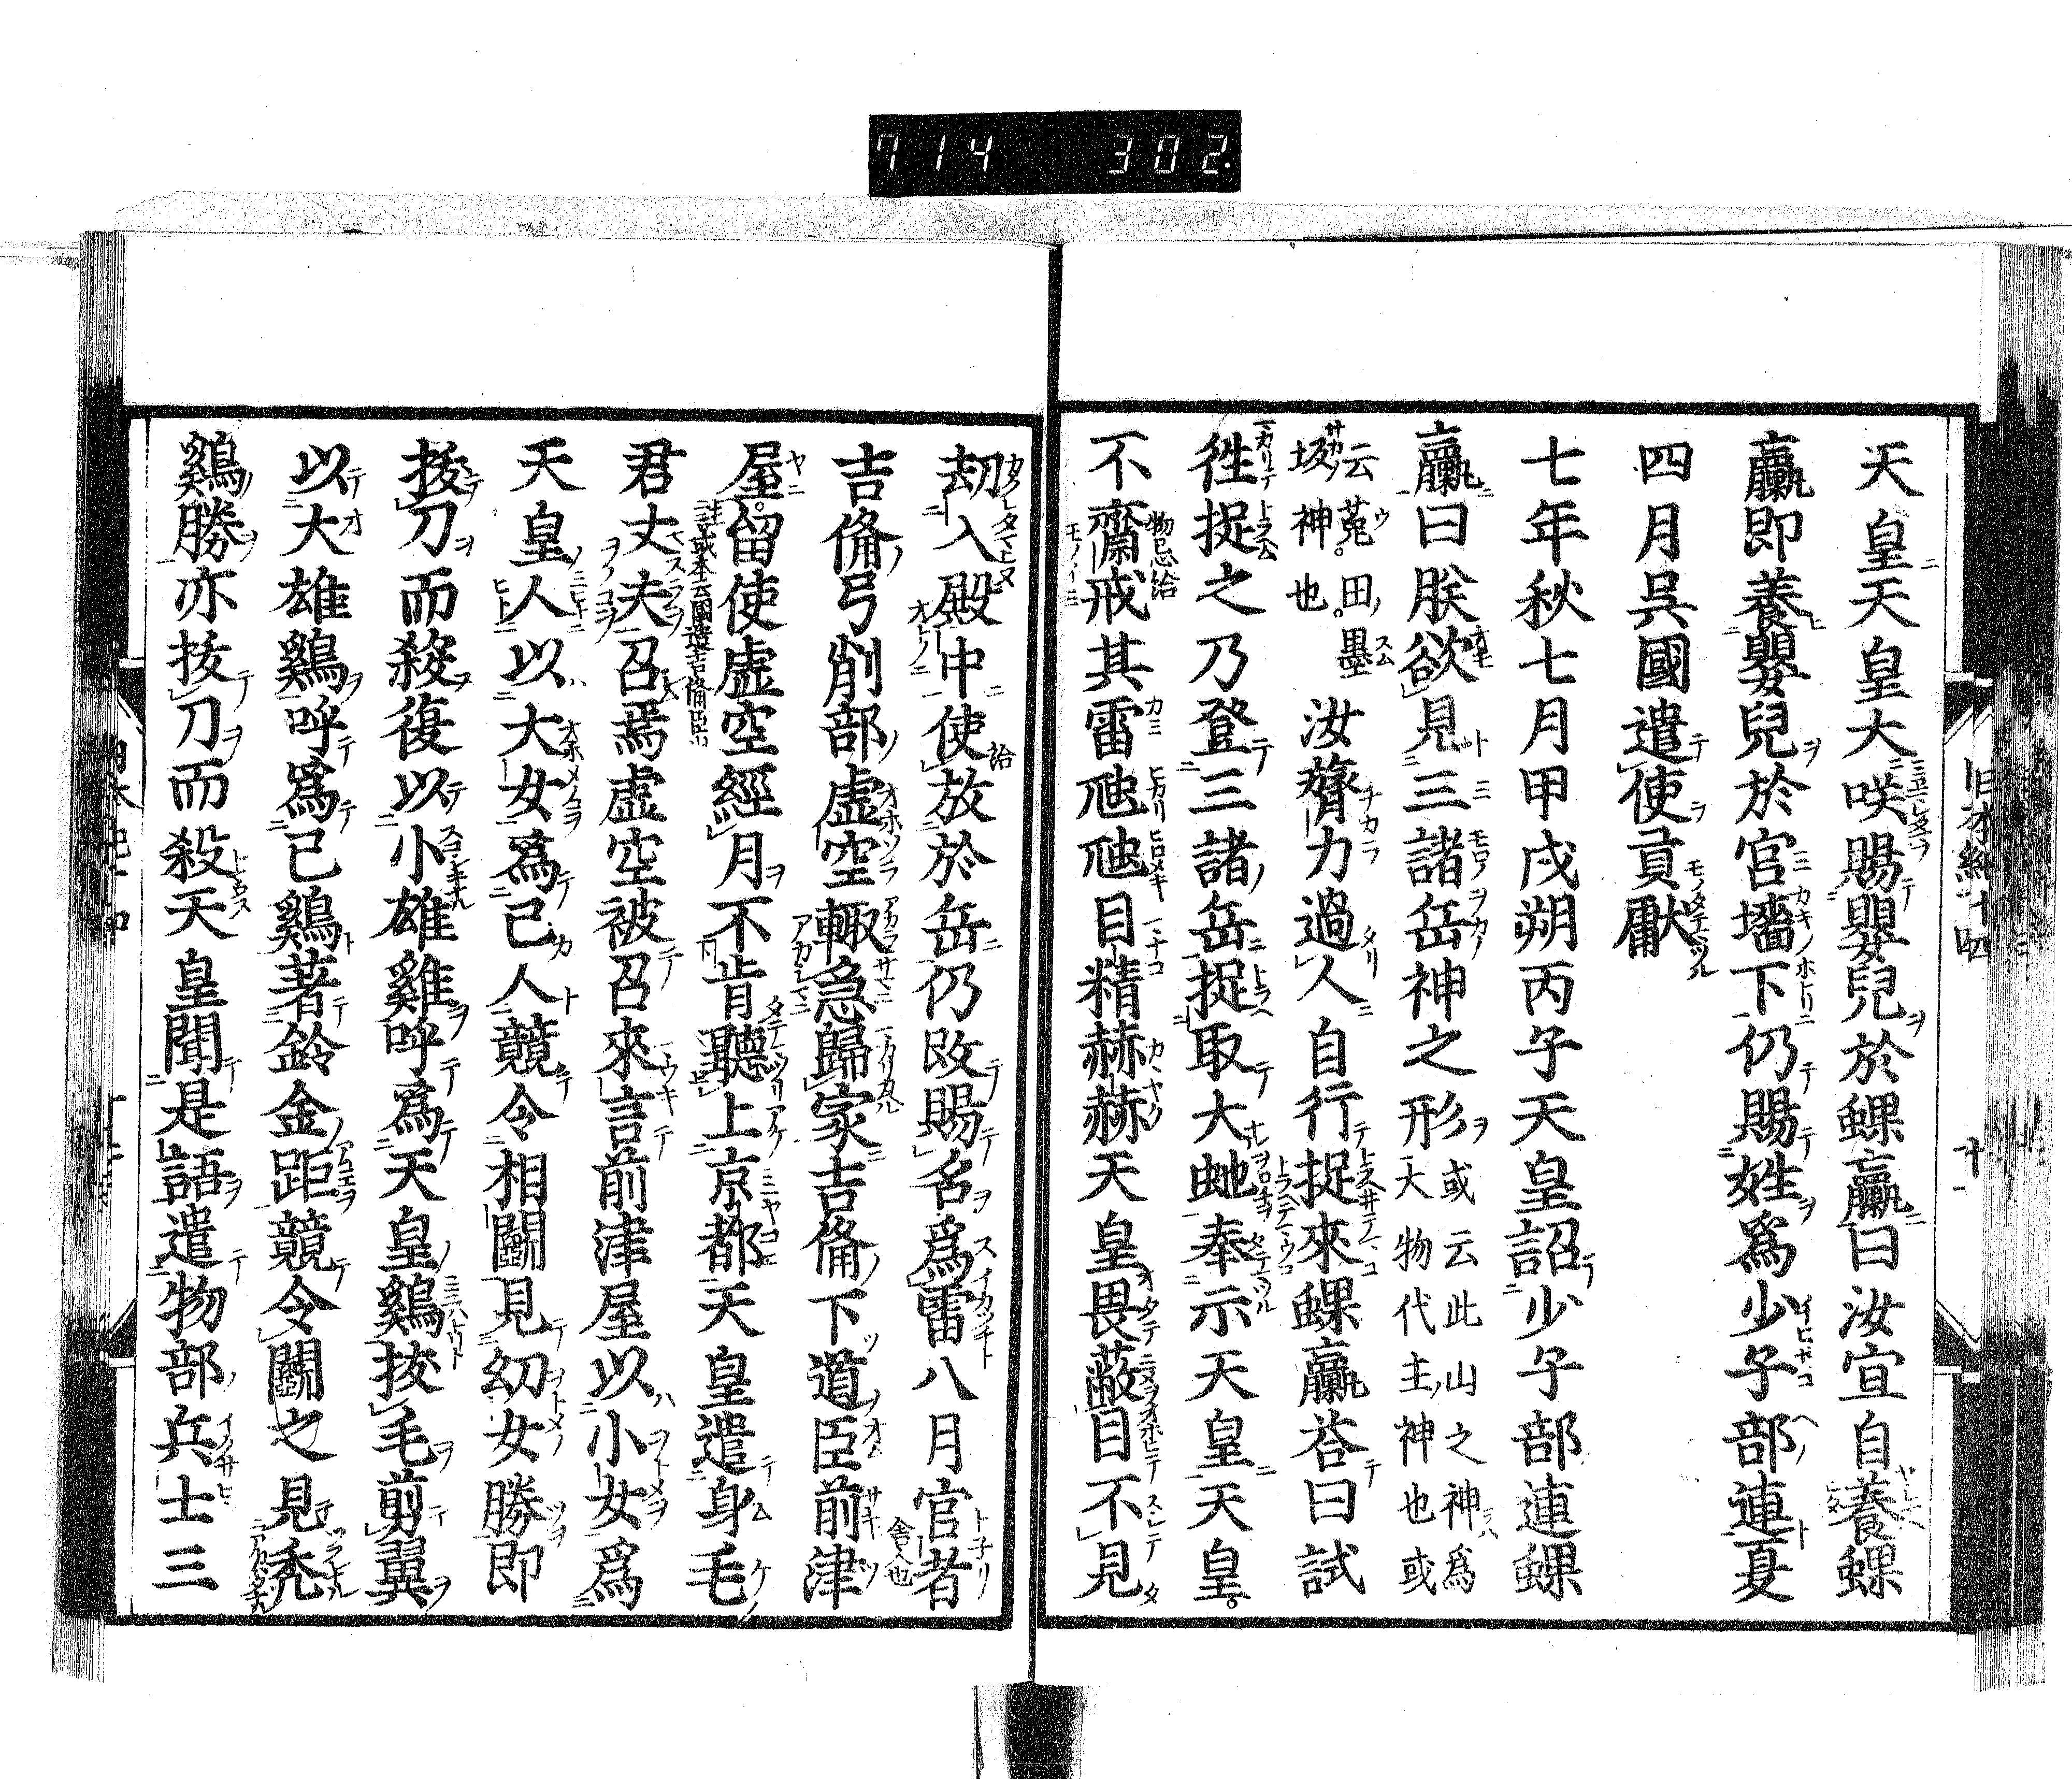 714 302.
天皇天皇大咲賜嬰兒於蜾蠃曰汝宜自養蜾
蠃即養嬰兒於宮墻下仍賜姓爲少子部連夏
四月吳國遣使貢獻
七年秋七月甲戌朔丙子天皇詔少子部連蜾
蠃曰朕欲見三諸岳神之形或云此山之神爲大物代主神也或
云菟田墨坂神也汝膂力過人自行捉來蜾蠃荅曰試
徃捉之乃登三諸岳捉取大虵奉示天皇天皇
不齋戒其雷虺虺目精赫赫天皇畏蔽目不見
却入殿中使放於岳仍改賜名爲雷八月官者
吉備弓削部虛空輙急歸家吉備下道臣前津
屋或本云國造吉備臣山留使虛空經月不肯聽上京都天皇遣身毛
君丈夫召焉虛空被召來言前津屋以小女爲
天皇人以大女爲己人競令相鬭見幼女勝即
拔刀而殺復以小雄雞呼爲天皇鷄拔毛剪翼
以大雄鷄呼爲己鷄著鈴金距競令鬭之見禿
鷄勝亦拔刀而殺天皇聞是語遣物部兵士三
日本紀十四
十一